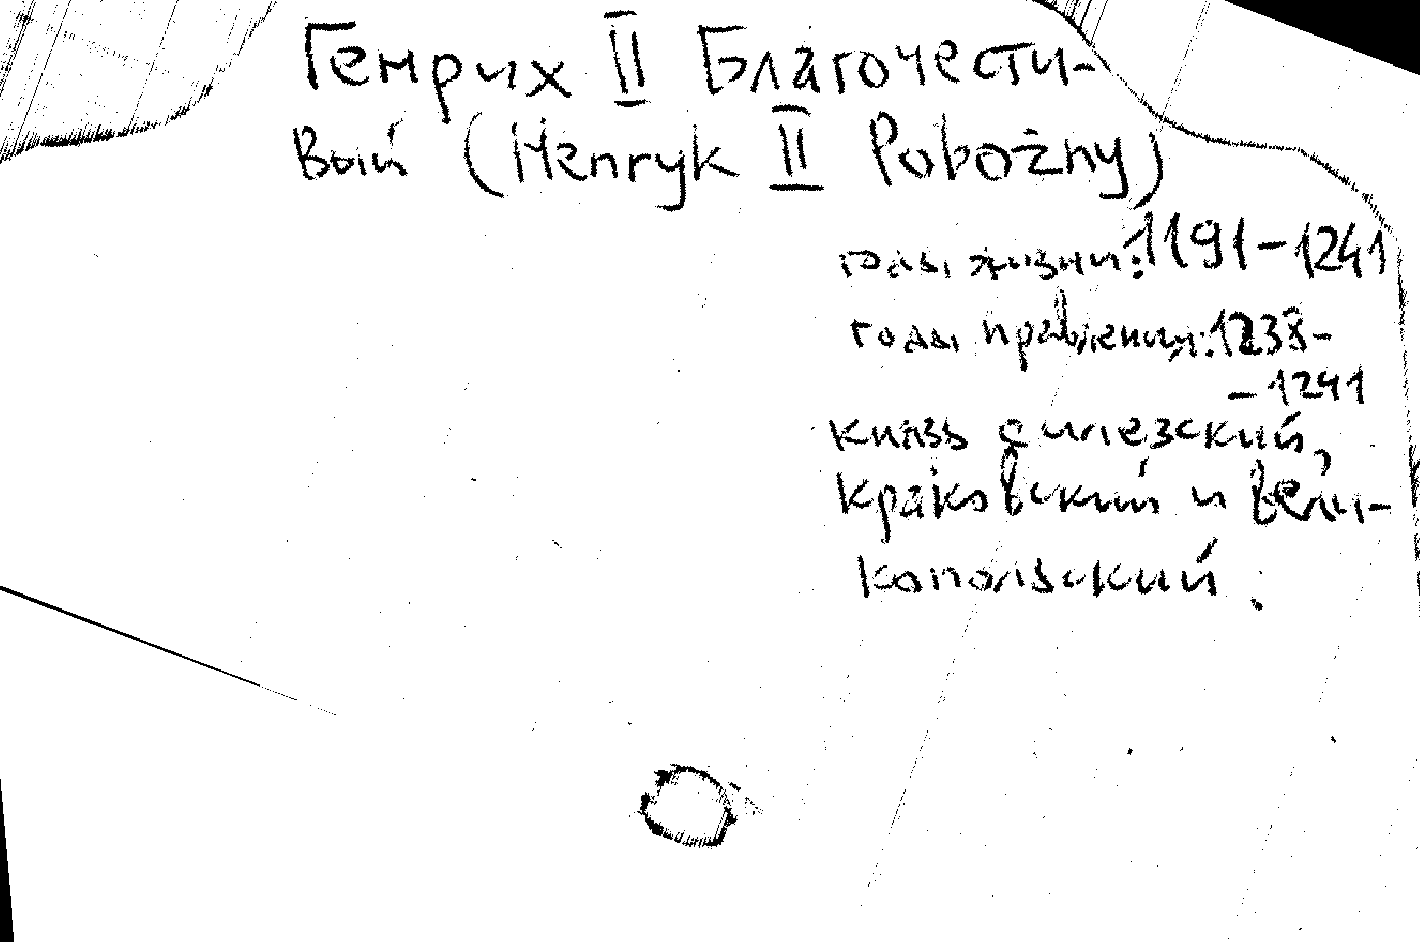 Генрих II Благочести-
вый (Henryk II Pobożny)
годы жизни: 1191-1241
годы правления: 1238-
-1241
князь силезский,
краковский и вели-
копольский.